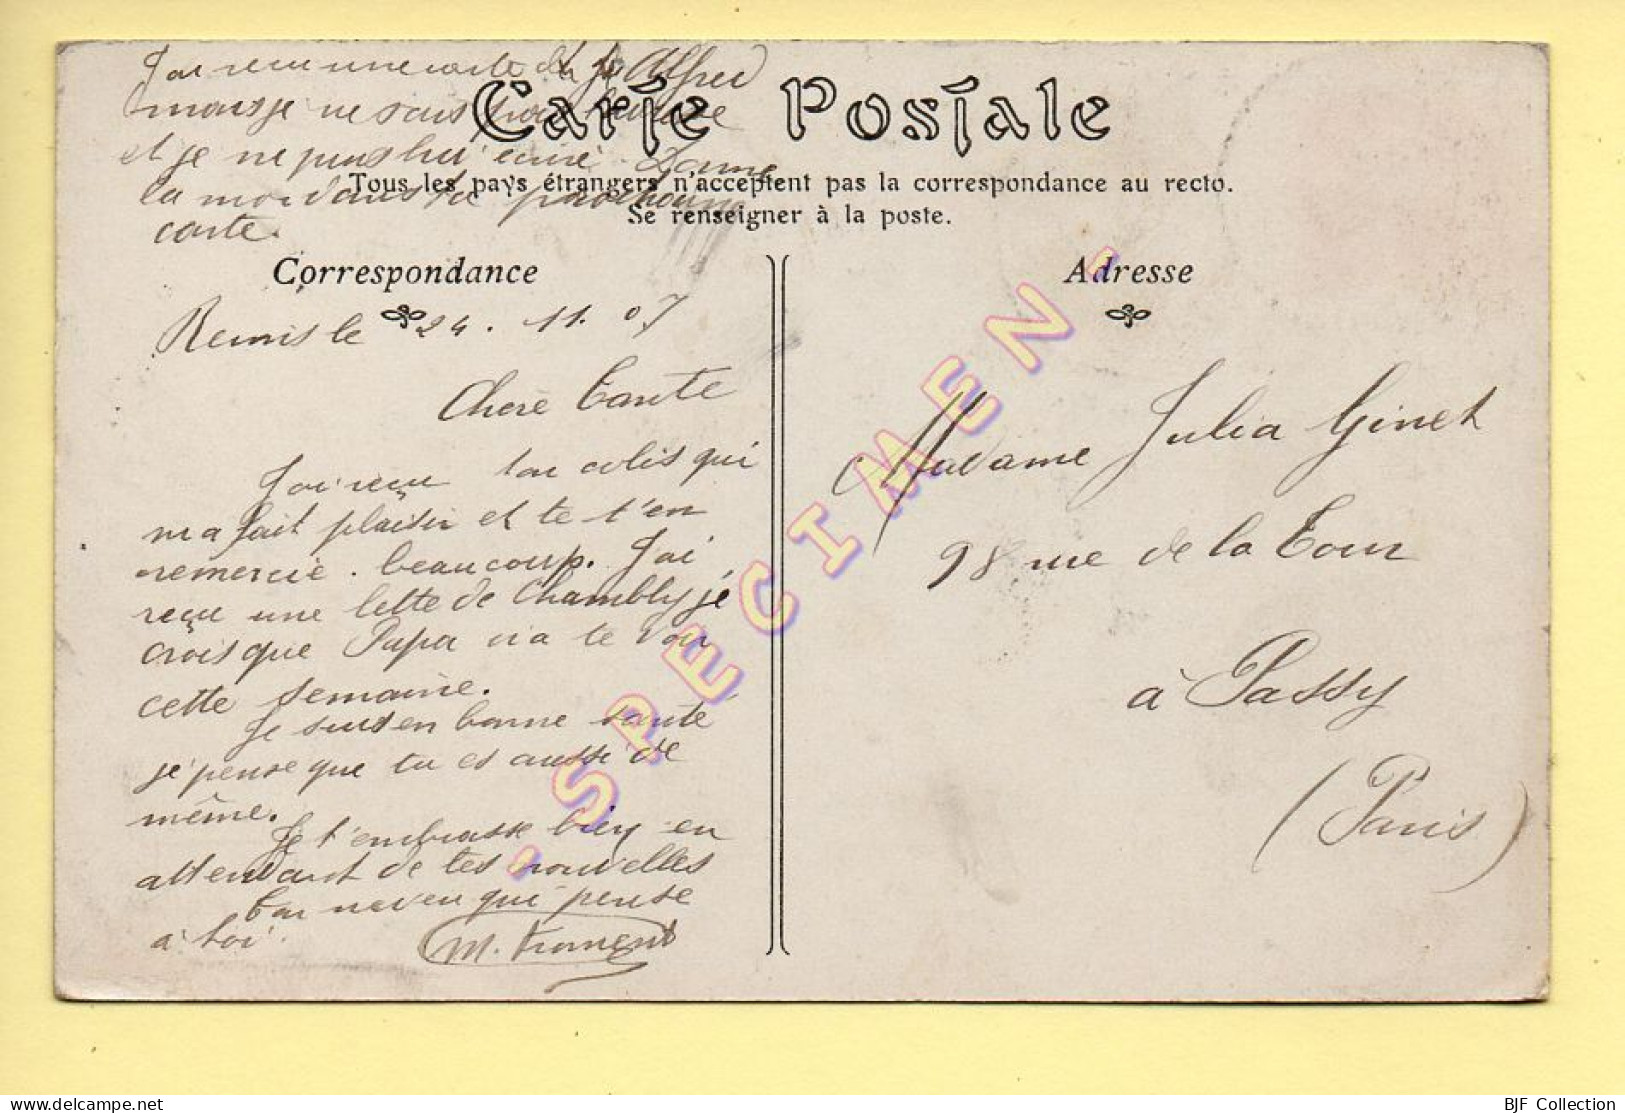 J'ai reçu une carte de Alfred
mais je ne sais pas
et je ne puis lui écrire. Donne
la moi dans ta prochaine
carte.
Carte Postale
Tous les pays étrangers n'acceptent pas la correspondance au recto.
Se renseigner à la poste.
Correspondance
Adresse
Reims le 24. 11. 07
Chère Tante
J'ai reçu ton colis qui
m'a fait plaisir et te t'en
remercie beaucoup. J'ai
reçu une lette de Chambly je
crois que Papa ira te voir
cette semaine.
Je suis en bonne santé
je pense que tu es aussi de
même.
Je t'embrasse bien en
attendant de tes nouvelles
Ton neveu qui pense
à toi.
M. Froment
Madame Julia Ginet
98 rue de la Tour
à Passy
(Paris)
- SPECIMEN -
BJF Collection